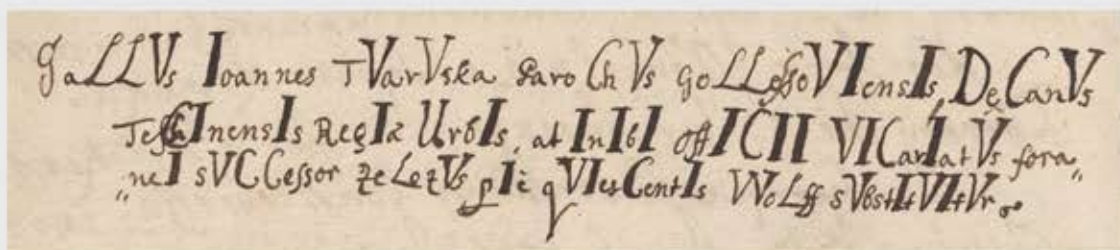 GaLLVs Ioannes TVarVska ParoChVs GoLLessoVIensIs, DeCanVs
TessChInensIs RegIæ UrbIs, at InIbI offICII VICarIatVs fora„
„neI sVCCessor zeLezVs pIè qVIesCentIs WoLff sVbstItVItVr.